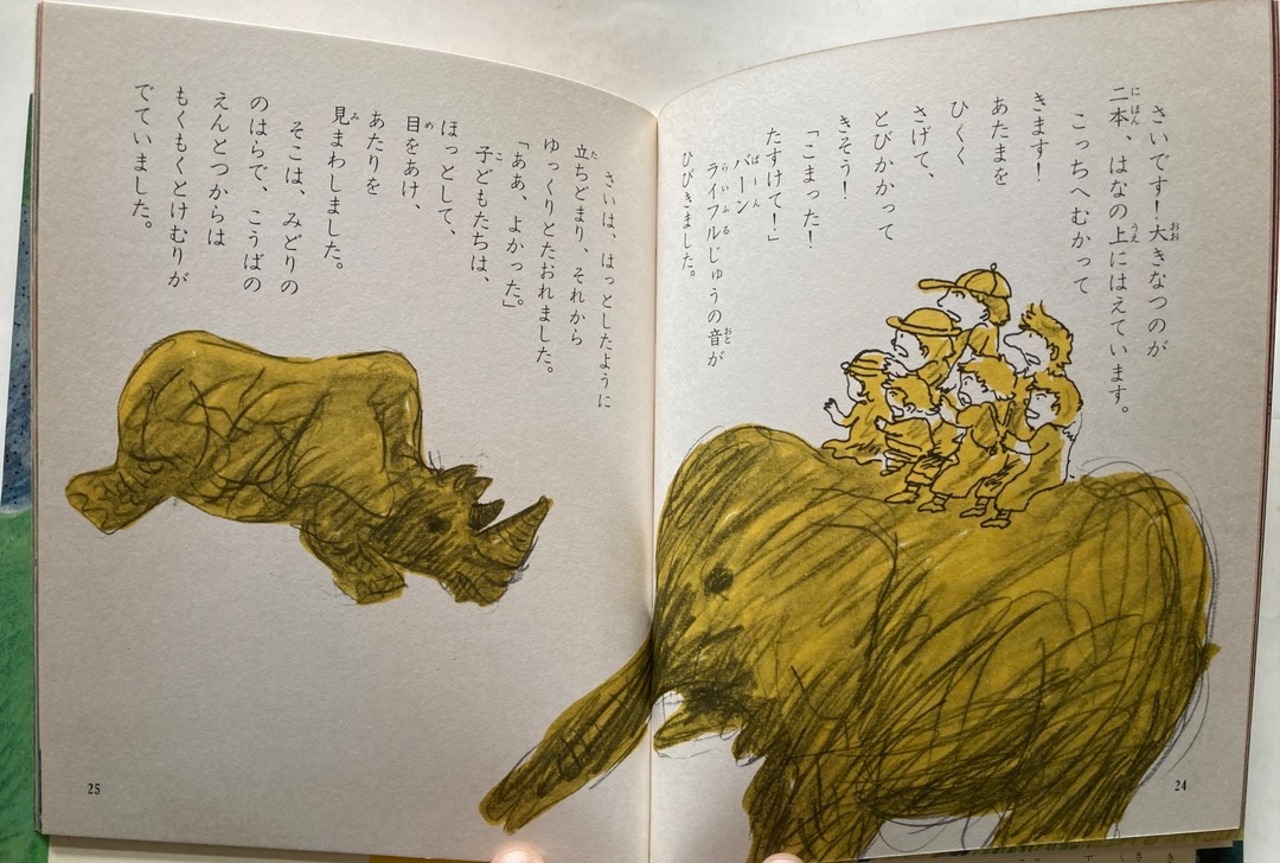 さいです！大きなつのが
二本、はなの上にはえています。
こっちへむかって
きます！
あたまを
ひくく
さげて、
とびかかって
きそう！
「こまった！
たすけて！」
バーン
ライフルじゅうの音が
ひびきました。
24
さいは、はっとしたように
立ちどまり、それから
ゆっくりとたおれました。
「ああ、よかった。」
子どもたちは、
ほっとして、
目をあけ、
あたりを
見まわしました。
そこは、みどりの
のはらで、こうばの
えんとつからは
もくもくとけむりが
でていました。
25